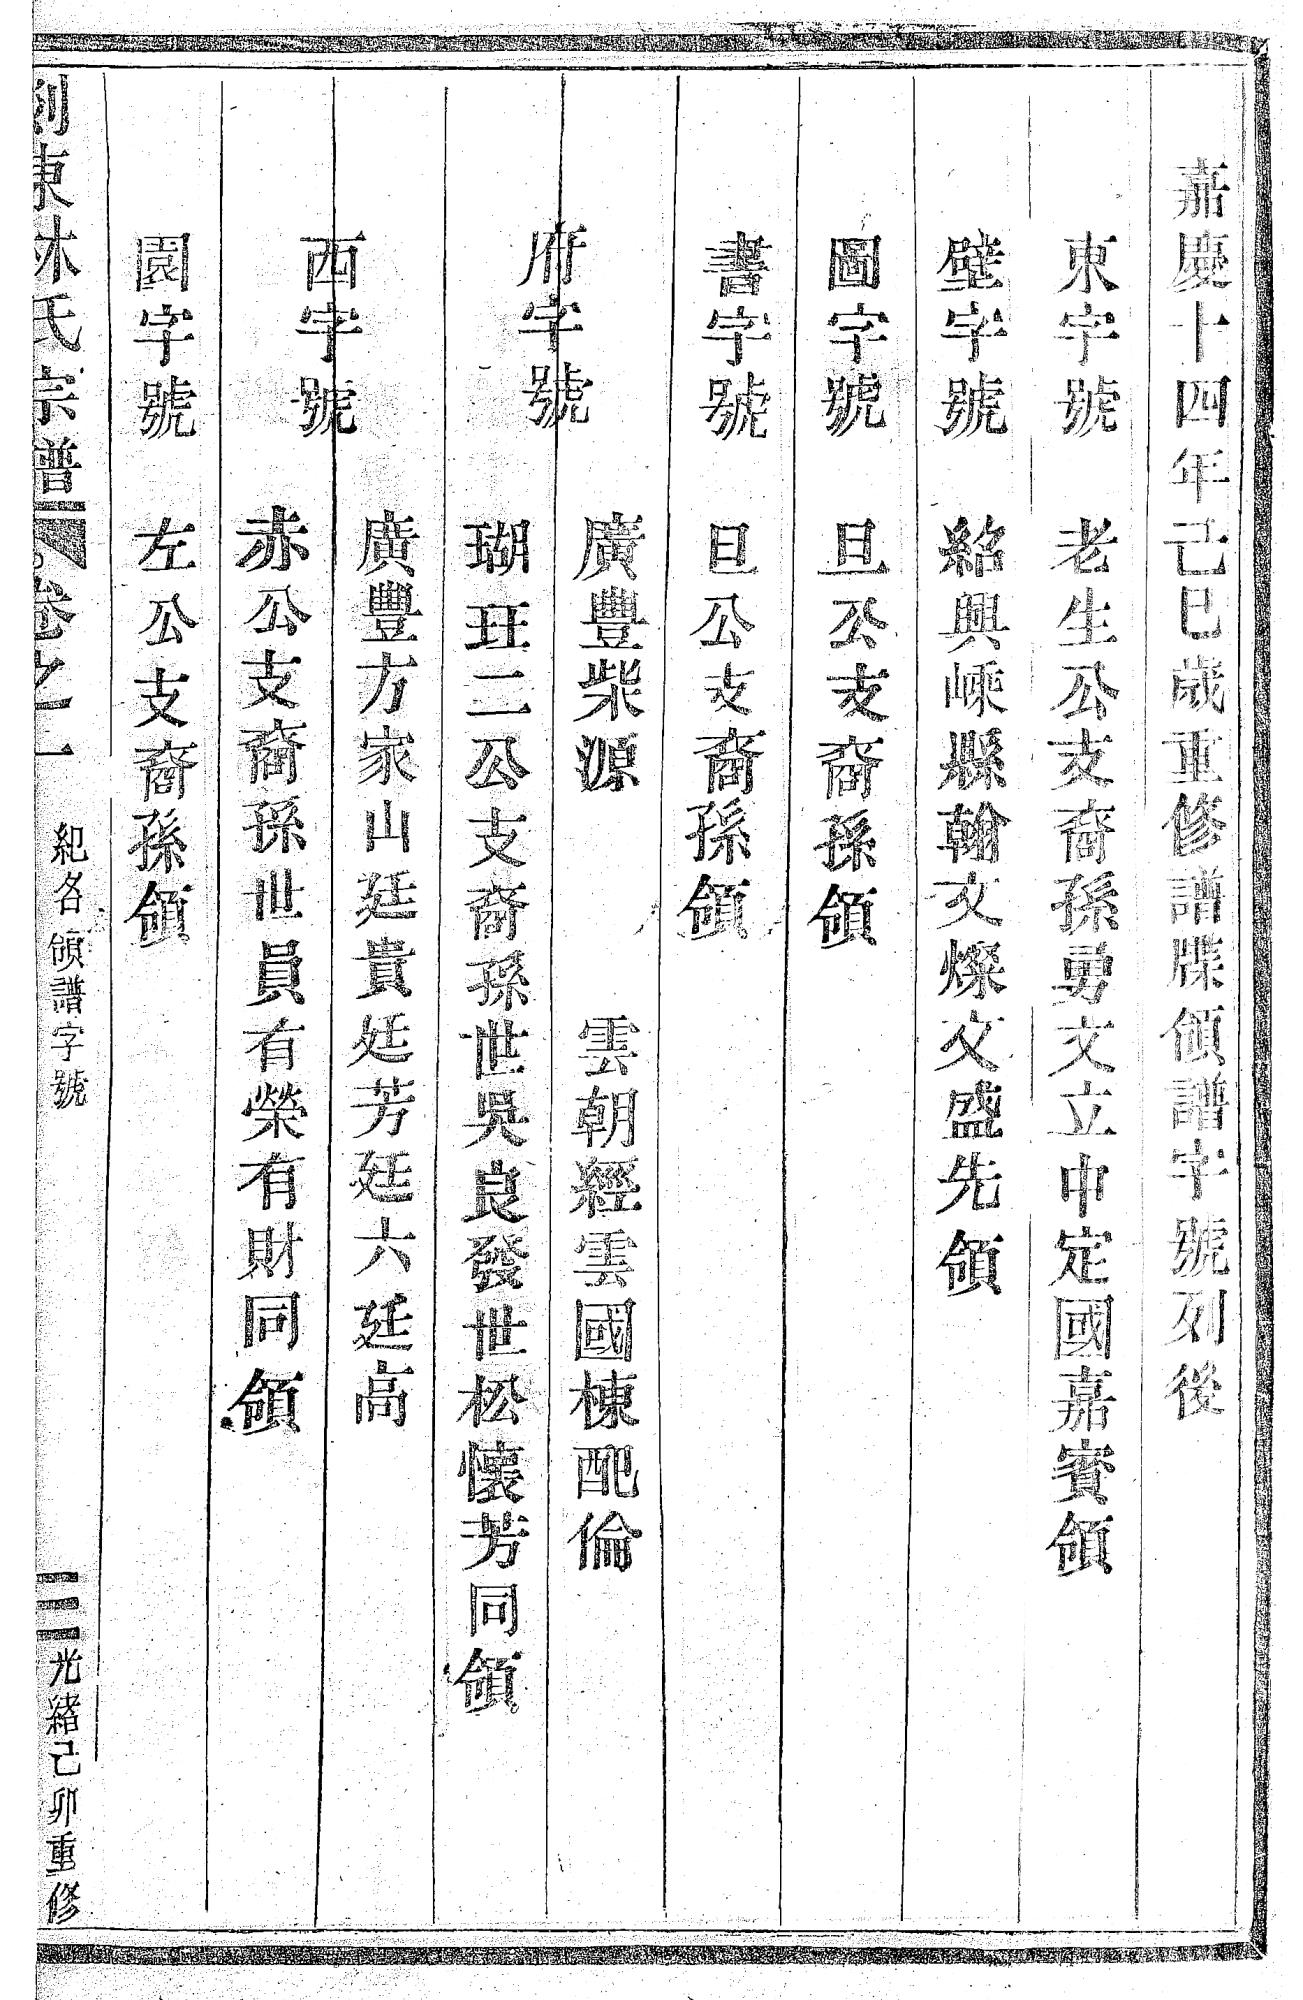 嘉慶十四年己巳歲重修譜牒領譜字號列後
東字號 老生公支裔孫勇文立中定國嘉賓領
壁字號 紹興嵊縣翰文燦文盛先領
圖字號 旦公支裔孫領
書字號 旦公支裔孫領
府字號
廣豐柴源 雲朝經雲國棟配倫
瑚珏二公支裔孫世吳良發世松懷芳同領
西字號
廣豐方家山廷貴廷芳廷六廷高
赤公支裔孫世員有榮有財同領
園字號 左公支裔孫領
東林氏宗譜 卷之一 紀各領譜字號 三 光緒己卯重修